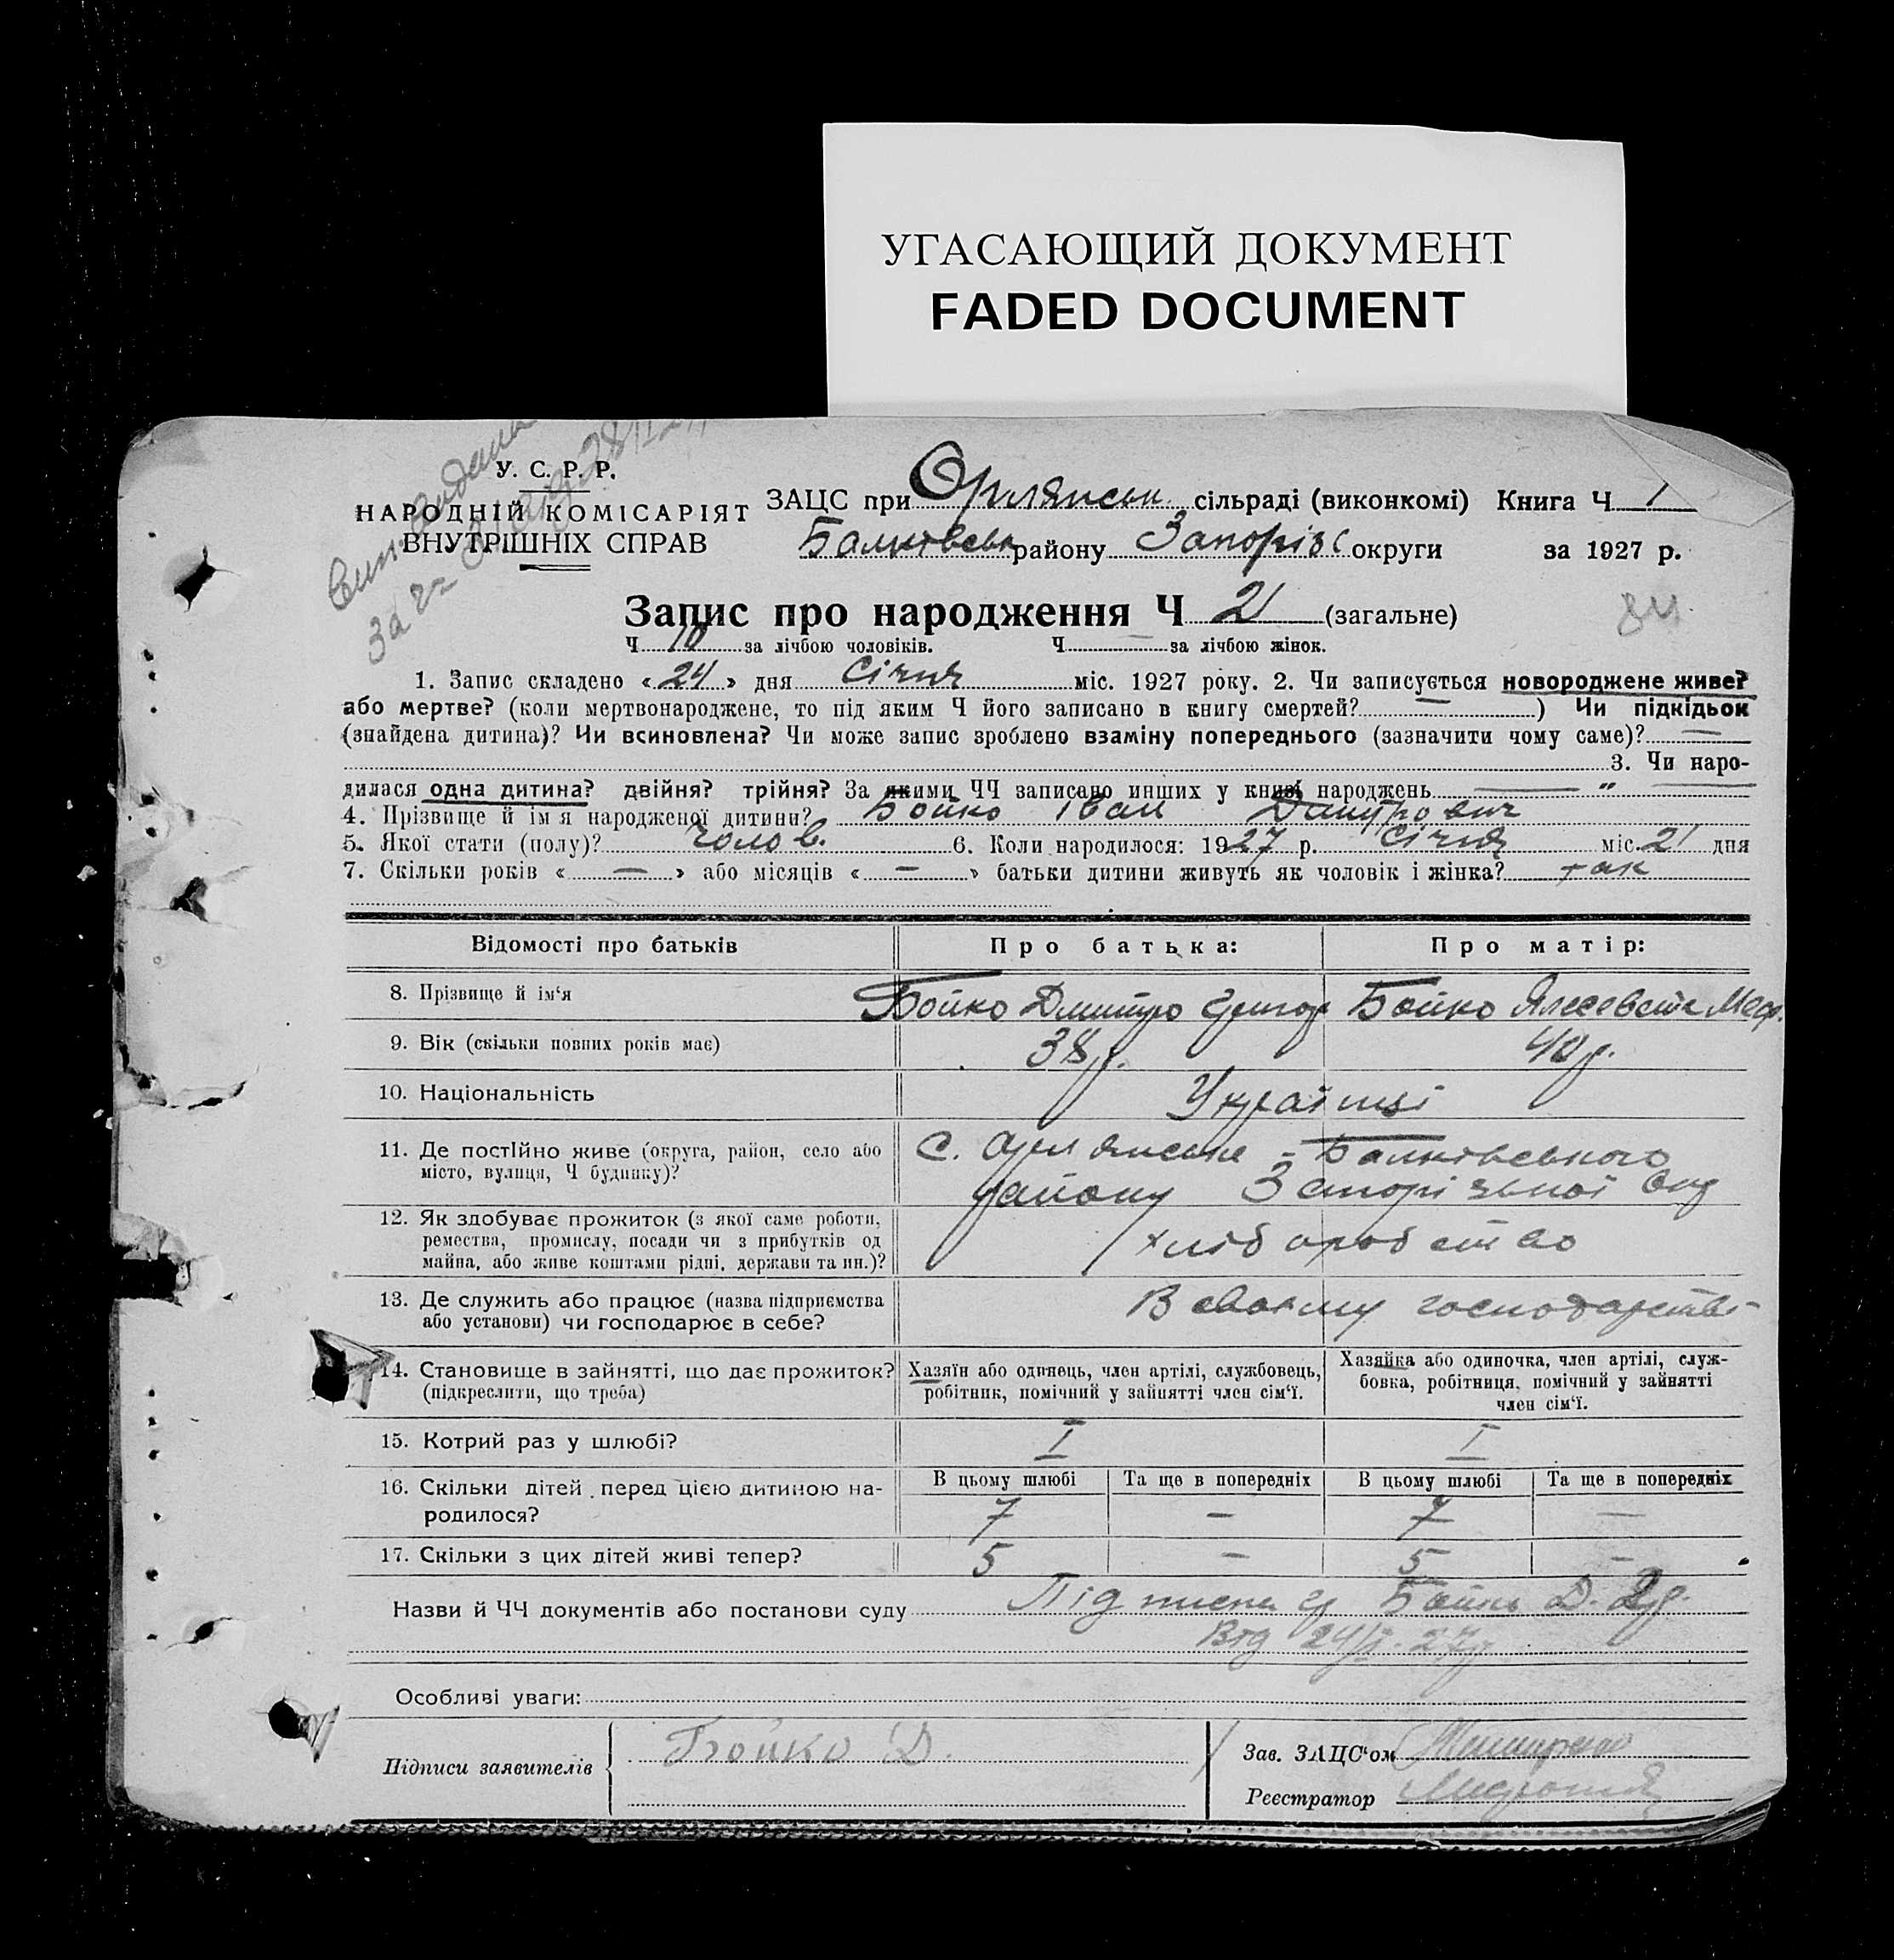 УГАСАЮЩИЙ ДОКУМЕНТ
FADED DOCUMENT
У. С. Р. Р.
НАРОДНІЙ КОМІСАРІЯТ
ВНУТРІШНІХ СПРАВ
ЗАЦС при Орлянськ сільраді (виконкомі) Книга Ч 1
Балківськ району Запоріз округи за 1927 р.
Запис про народження Ч 21 (загальне)
84
Ч 10 за лічбою чоловіків. Ч — за лічбою жінок.
1. Запис складено « 24 » дня Січня міс. 1927 року. 2. Чи записується новороджене живе?
або мертве? (коли мертвонароджене, то під яким Ч його записано в книгу смертей? — ) Чи підкідьок
(знайдена дитина)? Чи всиновлена? Чи може запис зроблено взаміну попереднього (зазначити чому саме)? —
3. Чи наро-
дилася одна дитина? двійня? трійня? За якими ЧЧ записано инших у книзі народжень — „ —
4. Прізвище й ім'я народженої дитини? Бойко Іван Дмитрович
5. Якої стати (полу)? чолов. 6. Коли народилося: 1927 р. Січня міс. 21 дня
7. Скільки років « — » або місяців « — » батьки дитини живуть як чоловік і жінка? так
Відомості про батьків Про батька: Про матір:
8. Прізвище й ім'я Бойко Дмитро Григор Бойко Єлисавета
9. Вік (скільки повних років має) 38 р. 40 р.
10. Національність Українці
11. Де постІйно живе (округа, район, село або
місто, вулиця, Ч будинку)?
С. Орлянське Балківського
району Запорізької Окр
12. Як здобуває прожиток (з якої саме роботи,
ремества, промислу, посади чи з прибутків од
майна, або живе коштами рідні, держави та ин.)?
хліборобство
13. Де служить або працює (назва підприємства
або установи) чи господарює в себе?
В своєму господарстві
14. Становище в зайнятті, що дає прожиток?
(підкреслити, що треба)
Хазяїн або одинець, член артілі, службовець,
робітник, помічний у зайнятті член сім'ї.
Хазяйка або одиночка, член артілі, служ-
бовка, робітниця, помічний у зайнятті
член сім'ї.
15. Котрий раз у шлюбі? I I
16. Скільки дітей перед цією дитиною на-
родилося?
В цьому шлюбі Та ще в попередніх В цьому шлюбі Та ще в попередніх
7 — 7 —
17. Скільки з цих дітей живі тепер? 5 — 5 —
Назви й ЧЧ документів або постанови суду Бойко Д.
Від 24/I-27р
Особливі уваги:
Підписи заявителів Бойко Д.
Зав. ЗАЦС'ом
Реєстратор